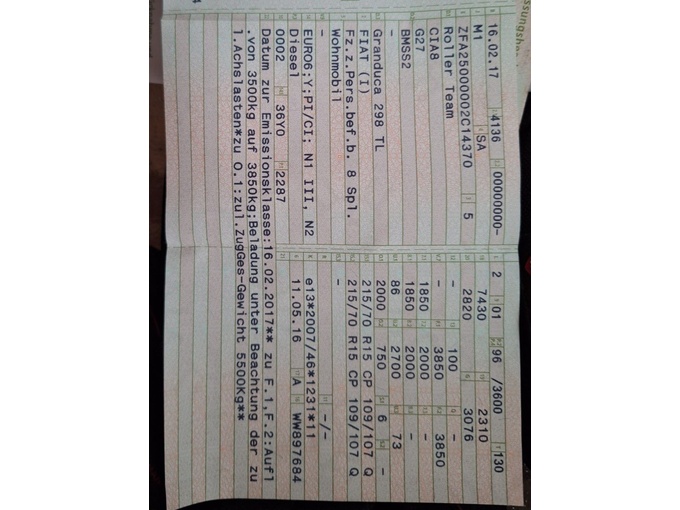 ssungsbe
16.02.17 4136 00000000- 2 01 96 /3600 130
M1 SA 7430 2310
ZFA25000002C14370 5 2820 3076
Roller Team - 100 -
CIA8 - 3850 3850
G27 1850 2000 -
BMSS2 1850 2000 -
- 86 2700 73
Granduca 298 TL 2000 750 6 -
FIAT (I) 215/70 R15 CP 109/107 Q
Fz.z.Pers.bef.b. 8 Spl. 215/70 R15 CP 109/107 Q
Wohnmobil -
- -/-
EURO6;Y;PI/CI; N1 III, N2 e13*2007/46*1231*11
Diesel 11.05.16 A WW897684
0002 36Y0 2287
Datum zur Emissionsklasse:16.02.2017** zu F.1,F.2:Aufl
.von 3500kg auf 3850kg;Beladung unter Beachtung der zu
l.Achslasten*zu O.1:zul.ZugGes-Gewicht 5500Kg**